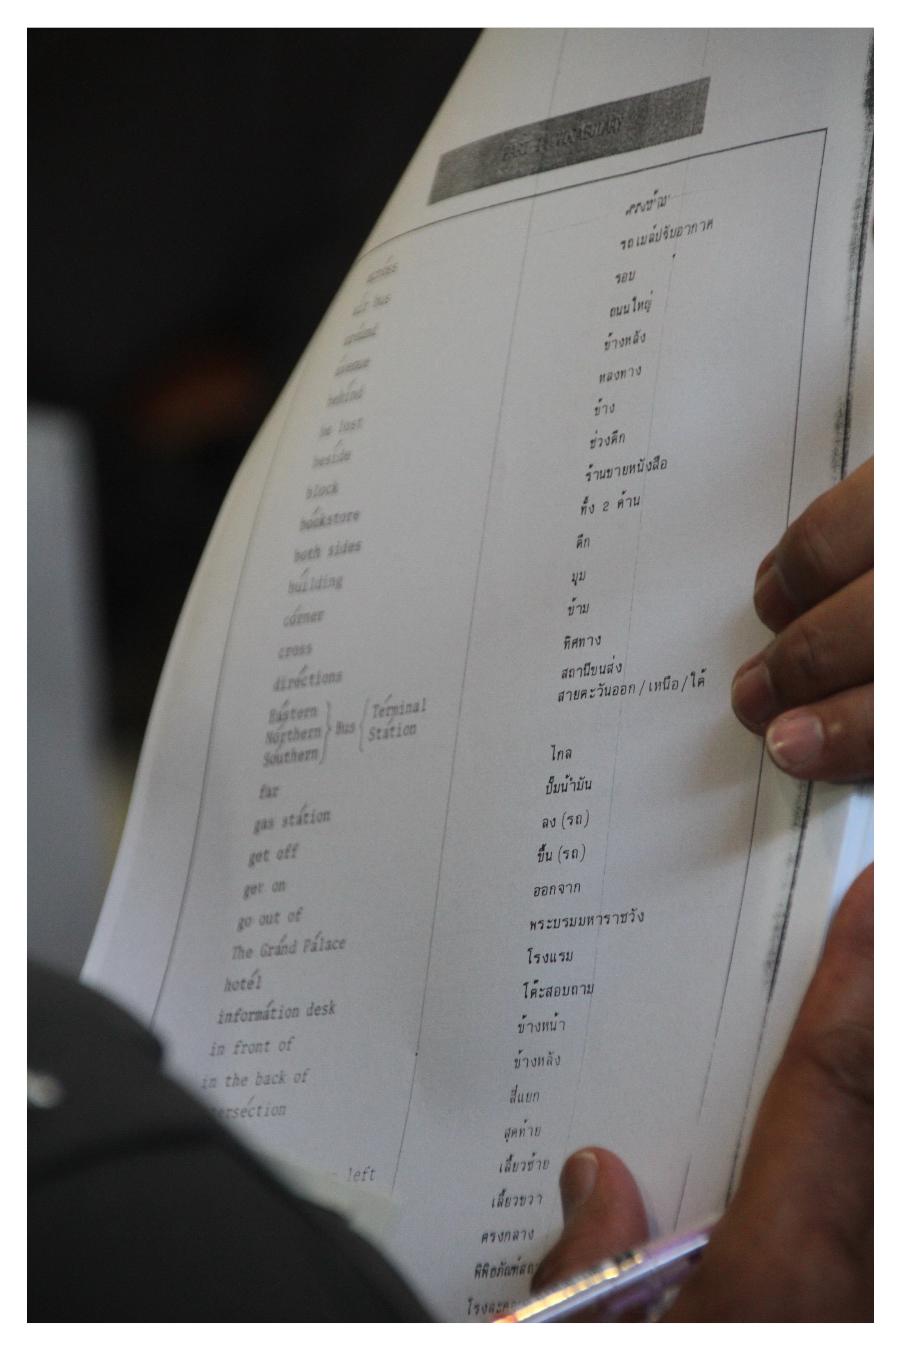 VOCABULARY
across ตรงข้าม
air bus รถเมล์ปรับอากาศ
around รอบ
avenue ถนนใหญ่
behind ข้างหลัง
be lost หลงทาง
beside ข้าง
block ช่วงตึก
bookstore ร้านขายหนังสือ
both sides ทั้ง 2 ด้าน
building ตึก
córner มุม
cross ข้าม
diréctions ทิศทาง
Eástern สถานีขนส่ง
Nórthern } Bus { Términal สายตะวันออก/เหนือ/ใต้
Soúthern Státion
far ไกล
gas státion ปั๊มน้ำมัน
get off ลง (รถ)
get on ขึ้น (รถ)
go out of ออกจาก
The Gránd Pálace พระบรมมหาราชวัง
hotél โรงแรม
informátion desk โต๊ะสอบถาม
in front of ข้างหน้า
in the back of ข้างหลัง
terséction สี่แยก
สุดท้าย
left เลี้ยวซ้าย
เลี้ยวขวา
ตรงกลาง